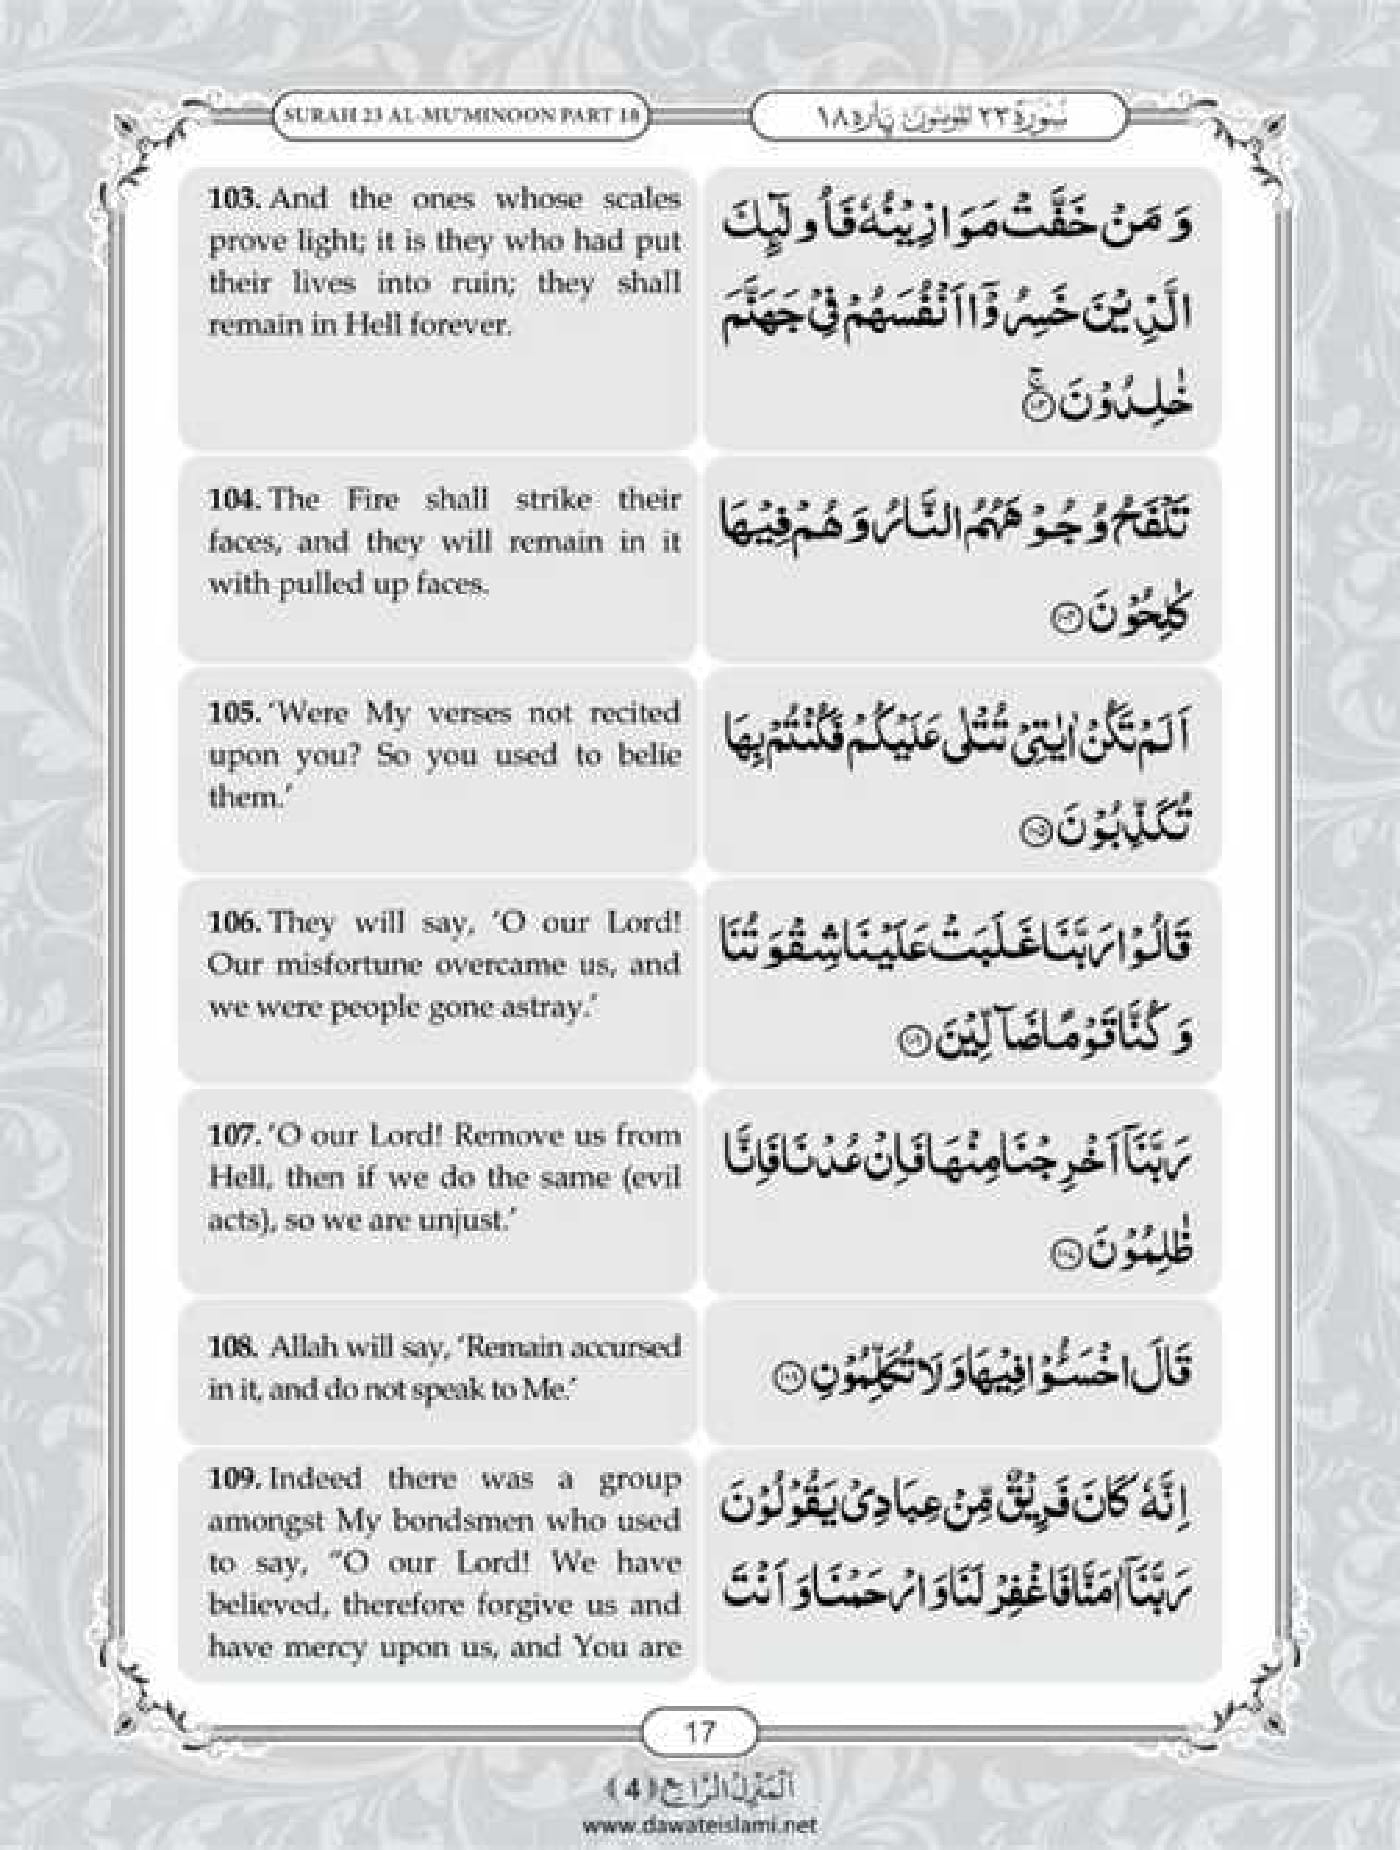 SURAH 23 AL-MU'MINOON PART 18
سُوۡرَۃ ٢٣ الۡمُؤۡمِنُوۡن پارہ ١٨
103. And the ones whose scales
prove light; it is they who had put
their lives into ruin; they shall
remain in Hell forever.
وَ مَنۡ خَفَّتۡ مَوَازِیۡنُہٗ فَاُولٰٓئِکَ
الَّذِیۡنَ خَسِرُوۡۤا اَنۡفُسَہُمۡ فِیۡ جَہَنَّمَ
خٰلِدُوۡنَ ۚ﴿۱۰۳﴾
104. The Fire shall strike their
faces, and they will remain in it
with pulled up faces.
تَلۡفَحُ وُجُوۡہَہُمُ النَّارُ وَ ہُمۡ فِیۡہَا
کٰلِحُوۡنَ ﴿۱۰۴﴾
105. 'Were My verses not recited
upon you? So you used to belie
them.'
اَلَمۡ تَکُنۡ اٰیٰتِیۡ تُتۡلٰی عَلَیۡکُمۡ فَکُنۡتُمۡ بِہَا
تُکَذِّبُوۡنَ ﴿۱۰۵﴾
106. They will say, 'O our Lord!
Our misfortune overcame us, and
we were people gone astray.'
قَالُوۡا رَبَّنَا غَلَبَتۡ عَلَیۡنَا شِقۡوَتُنَا
وَ کُنَّا قَوۡمًا ضَآلِّیۡنَ ﴿۱۰۶﴾
107. 'O our Lord! Remove us from
Hell, then if we do the same (evil
acts), so we are unjust.'
رَبَّنَاۤ اَخۡرِجۡنَا مِنۡہَا فَاِنۡ عُدۡنَا فَاِنَّا
ظٰلِمُوۡنَ ﴿۱۰۷﴾
108. Allah will say, 'Remain accursed
in it, and do not speak to Me.'
قَالَ اخۡسَـُٔوۡا فِیۡہَا وَ لَا تُکَلِّمُوۡنِ ﴿۱۰۸﴾
109. Indeed there was a group
amongst My bondsmen who used
to say, "O our Lord! We have
believed, therefore forgive us and
have mercy upon us, and You are
اِنَّہٗ کَانَ فَرِیۡقٌ مِّنۡ عِبَادِیۡ یَقُوۡلُوۡنَ
رَبَّنَاۤ اٰمَنَّا فَاغۡفِرۡ لَنَا وَ ارۡحَمۡنَا وَ اَنۡتَ
17
اَلۡمَنۡزِلُ الرَّابِع (4)
www.dawateislami.net